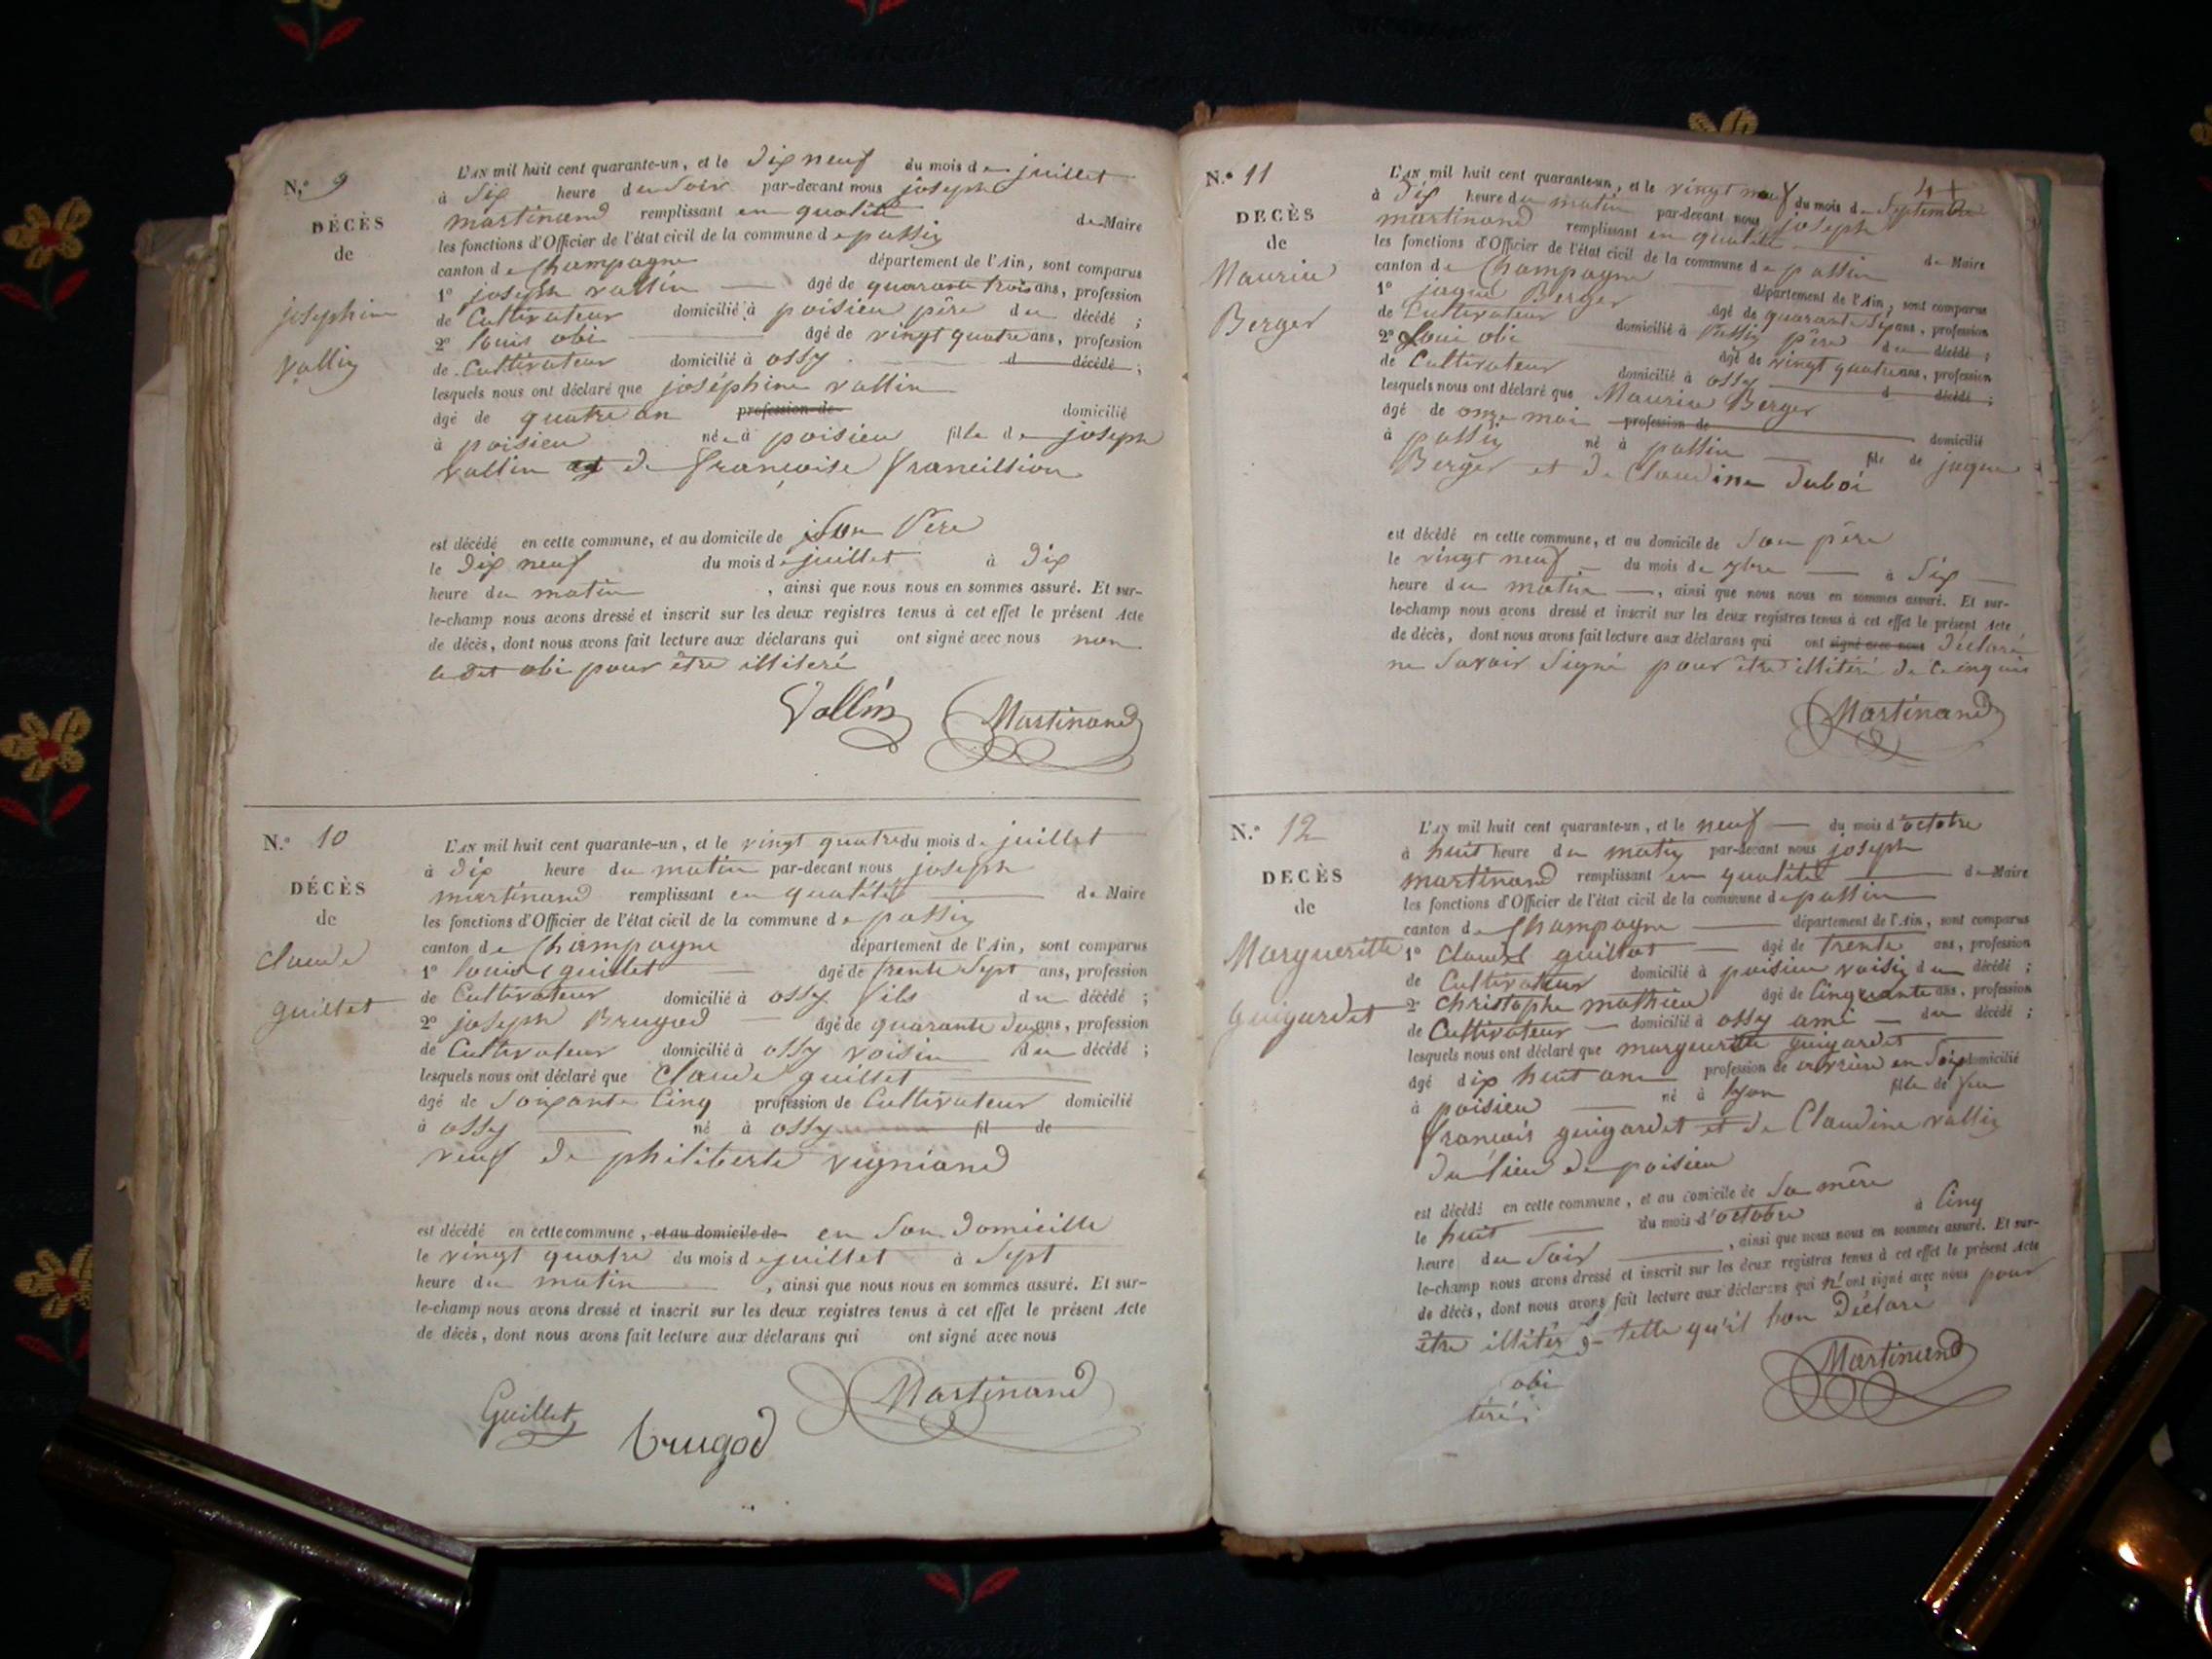 N.º 9
DÉCÈS
de
josephine
Vallin
L'AN mil huit cent quarante-un, et le Dix neuf du mois de juillet
à Six heure du Soir par-devant nous joseph
martinand remplissant en qualité de Maire
les fonctions d'Officier de l'état civil de la commune de passin
canton de Champagne département de l'Ain, sont comparus
1º joseph vallin âgé de quarante trois ans, profession
de Cultivateur domicilié à poisieu père du décédé ;
2º louis obi âgé de vingt quatre ans, profession
de Cultivateur domicilié à ossy d décédé ;
lesquels nous ont déclaré que joséphine vallin
âgé de quatre an profession de domicilié
à poisieu née à poisieu fille de joseph
vallin et de françoise francillion
est décédé en cette commune, et au domicile de Son Père
le Dix neuf du mois de juillet à Dix
heure du matin , ainsi que nous nous en sommes assuré. Et sur-
le-champ nous avons dressé et inscrit sur les deux registres tenus à cet effet le présent Acte
de décès, dont nous avons fait lecture aux déclarans qui ont signé avec nous non
le dit obi pour être illiteré
Vallin Martinand
N.º 10
DÉCÈS
de
Claude
guillet
L'AN mil huit cent quarante-un, et le vingt quatre du mois de juillet
à dix heure du matin par-devant nous joseph
martinand remplissant en qualité de Maire
les fonctions d'Officier de l'état civil de la commune de passin
canton de Champagne département de l'Ain, sont comparus
1º louis guillet âgé de trente Sept ans, profession
de Cultivateur domicilié à ossy fils du décédé ;
2º joseph Brugod âgé de quarante deux ans, profession
de Cultivateur domicilié à ossy voisin du décédé ;
lesquels nous ont déclaré que Claude guillet
âgé de Soixante Cinq profession de Cultivateur domicilié
à ossy né à ossy fil de
veuf de philiberte vigniand
est décédé en cette commune, et au domicile de en Son Domicille
le vingt quatre du mois de juillet à Sept
heure du matin , ainsi que nous nous en sommes assuré. Et sur-
le-champ nous avons dressé et inscrit sur les deux registres tenus à cet effet le présent Acte
de décès, dont nous avons fait lecture aux déclarans qui ont signé avec nous
Guillet Brugod Martinand
N.º 11
DECÈS
de
Maurice
Berger
L'AN mil huit cent quarante-un, et le vingt neuf du mois de Septembre
à Dix heure du matin par-devant nous joseph
martinand remplissant en qualité de Maire
les fonctions d'Officier de l'état civil de la commune de passin
canton de Champagne département de l'Ain, sont comparus
1º jaque Berger âgé de quarante Six ans, profession
de Cultivateur domicilié à Passin père du décédé ;
2º Loui obi âgé de vingt quatre ans, profession
de Cultivateur domicilié à ossy d décédé ;
lesquels nous ont déclaré que Maurice Berger
âgé de onze moi profession de domicilié
à passin né à passin fils de jaque
Berger et de Claudine Duboi
est décédé en cette commune, et au domicile de Son père
le vingt neuf du mois de 7bre à Six
heure du matin , ainsi que nous nous en sommes assuré. Et sur-
le-champ nous avons dressé et inscrit sur les deux registres tenus à cet effet le présent Acte
de décès, dont nous avons fait lecture aux déclarans qui ont signé avec nous Déclaré
ne Savoir Signé pour être illitéré de ce enquis
Martinand
N.º 12
DECÈS
de
Margueritte
guigardet
L'AN mil huit cent quarante-un, et le neuf du mois d'octobre
à huit heure du matin par-devant nous joseph
martinand remplissant en qualité de Maire
les fonctions d'Officier de l'état civil de la commune de passin
canton de Champagne département de l'Ain, sont comparus
1º Claude guillot âgé de trente ans, profession
de Cultivateur domicilié à poisieu voisin du décédé ;
2º Christophe mathieu âgé de Cinquante ans, profession
de Cultivateur domicilié à ossy ami du décédé ;
lesquels nous ont déclaré que margueritte guigardet
âgé dix huit ans profession de ouvrière en Soie domicilié
à poisieu né à lyon fille de feu
françois guigardet et de Claudine vallin
du lieu de poisieu
est décédé en cette commune, et au domicile de Sa mère
le huit du mois d'octobre à Cinq
heure du Soir , ainsi que nous nous en sommes assuré. Et sur-
le-champ nous avons dressé et inscrit sur les deux registres tenus à cet effet le présent Acte
de décès, dont nous avons fait lecture aux déclarans qui n'ont signé avec nous pour
être illitéré telle qu'il l'on Déclaré
Martinand
obi